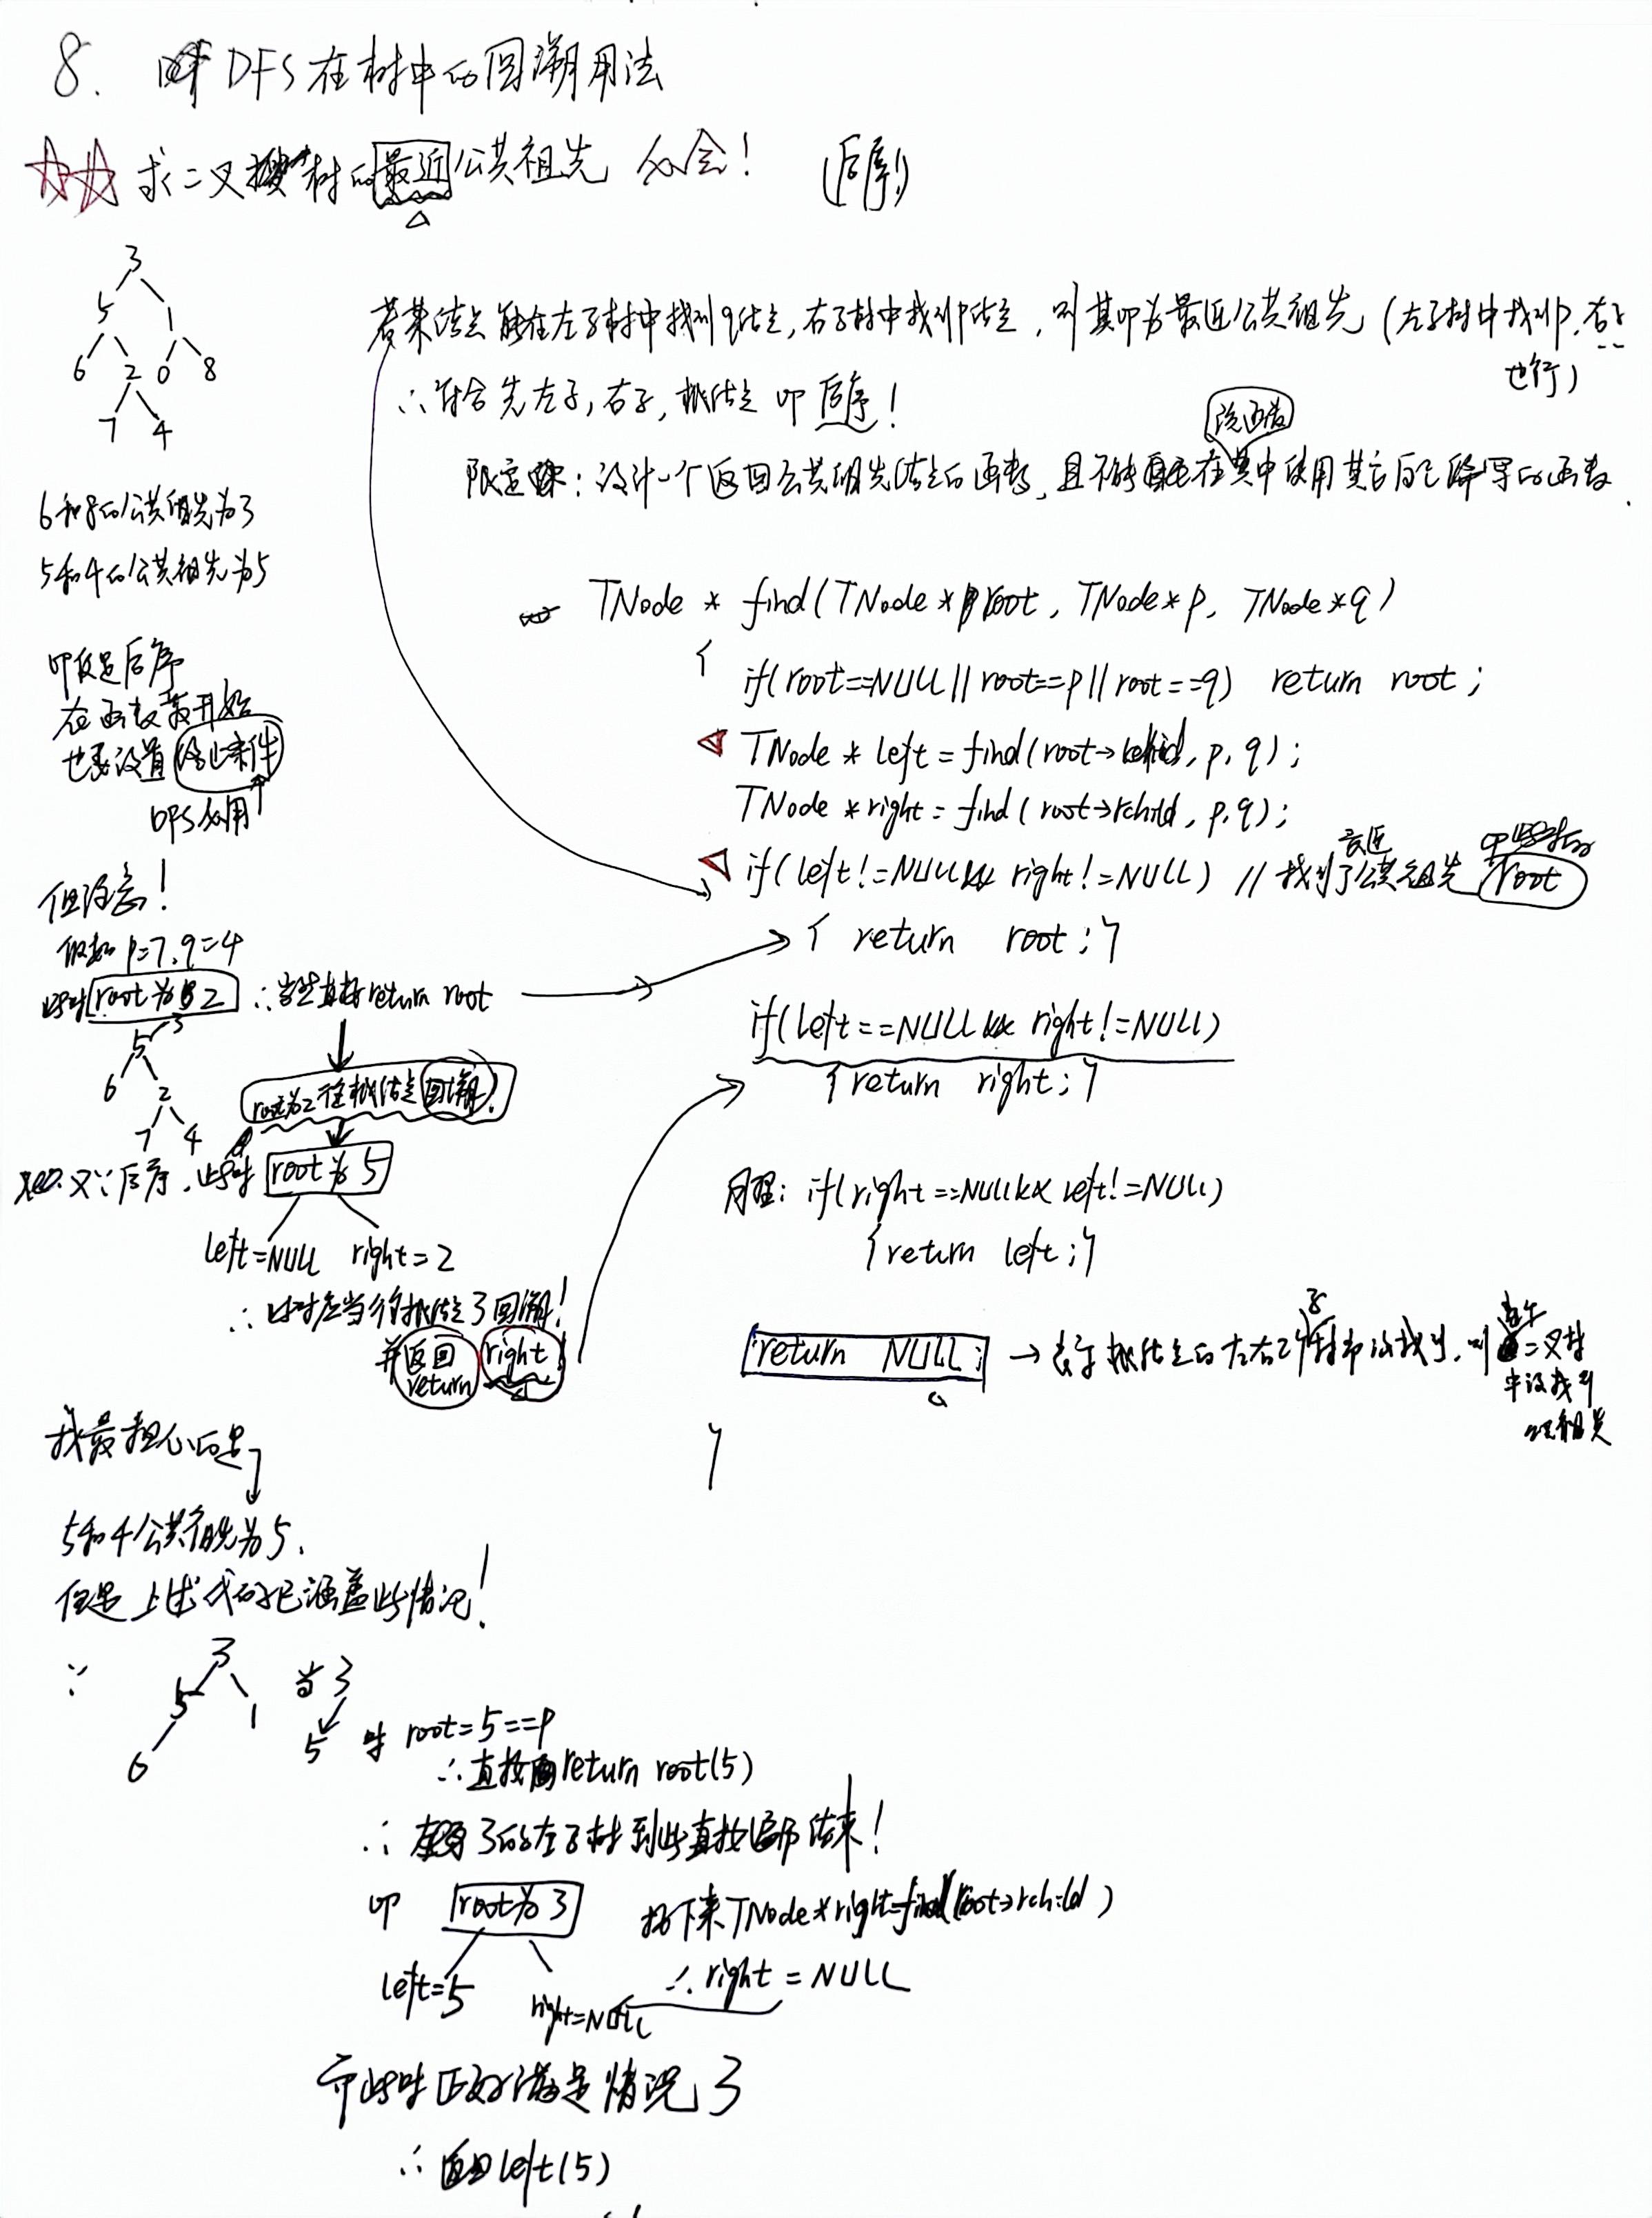 8. DFS在树中的回溯用法
求二叉树的最近公共祖先 必会! (后序!)
3
5 1
6 2 0 8
7 4
6和8的公共祖先为3
5和4的公共祖先为5
若某结点能在左子树中找到q结点,右子树中找到p结点,则其即为最近公共祖先(左子树中找到p,右子
也行)
∴符合先左子,右子,根结点 即后序!
该函数
限定:设计一个返回公共祖先结点的函数,且不能在其中使用其它自己写的函数.
即使是后序
在函数最开始
也要设置终止条件
DFS必用
TNode * find(TNode * root, TNode * p, TNode * q)
{
if(root==NULL || root==p || root==q) return root;
TNode * left = find(root->lchild, p, q);
TNode * right = find(root->rchild, p, q);
if(left!=NULL && right!=NULL) //找到了最近公共祖先 root
{ return root; }
if(left==NULL && right!=NULL)
{ return right; }
同理: if(right==NULL && left!=NULL)
{ return left; }
return NULL; → 表示根结点的左右2个子树都没找到,则二叉树
中没找到
祖先
}
但注意!
假如 p=7, q=4
此时root为2 ∴当然直接return root
3
5
6 2
7 4
root为2往根结点回溯!
又∵后序,此时 root为5
left=NULL right=2
∴此时应当往根结点3回溯!
并返回 right!
return
我最担心的是
5和4公共祖先为5.
但是上述代码已涵盖此情况!
∵ 3 当3
5 1 5 时 root=5==p
6 ∴直接return root(5)
∴ 3的左子树到此直接遍历结束!
即 root为3 接下来TNode*right=find(root->rchild)
left=5 right=NULL ∴right = NULL
而此时正好满足情况3
∴返回left(5)